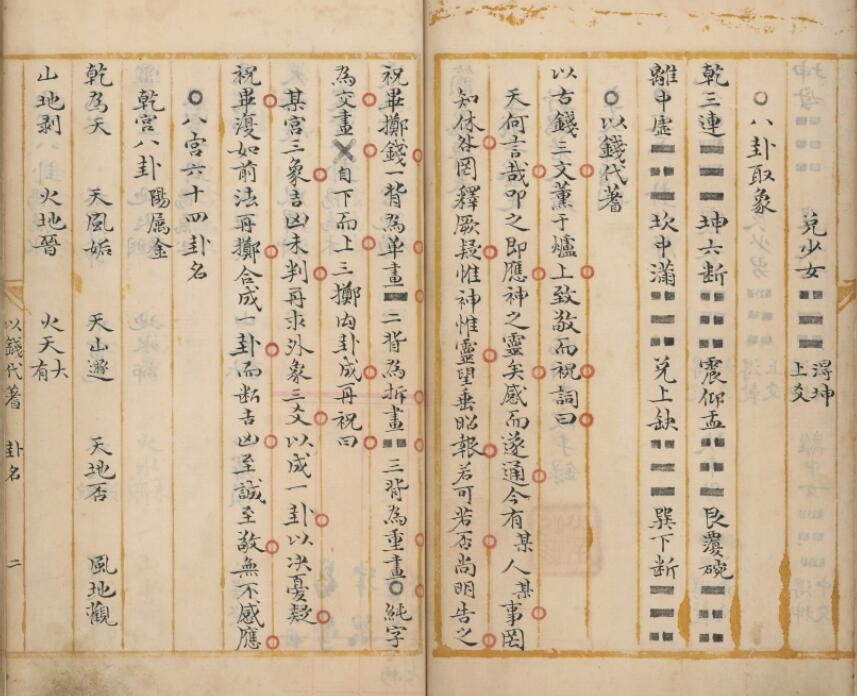 兌少女☱得坤上爻
○八卦取象
乾三連☰ 坤六断☷ 震仰盂☳ 艮覆碗☶
離中虛☲ 坎中滿☵ 兌上缺☱ 巽下断☴
○以錢代蓍
以古錢三文薰于爐上致敬而祝詞曰
天何言哉叩之即應神之靈矣感而遂通今有某人某事罔
知休咎罔釋厥疑惟神惟靈望垂昭報若可若否尚明告之
祝畢擲錢一背為单畫▬二背為拆畫▬▬三背為重畫○純字
為交畫×自下而上三擲内卦成再祝曰
某宮三象吉凶未判再求外象三爻以成一卦以决憂疑
祝畢復如前法再擲合成一卦而断吉凶至誠至敬無不感應
○八宮六十四卦名
乾宮八卦陽属金
乾為天 天風姤 天山遯 天地否 風地觀
山地剥 火地晉 火天大有
以錢代蓍 卦名 二